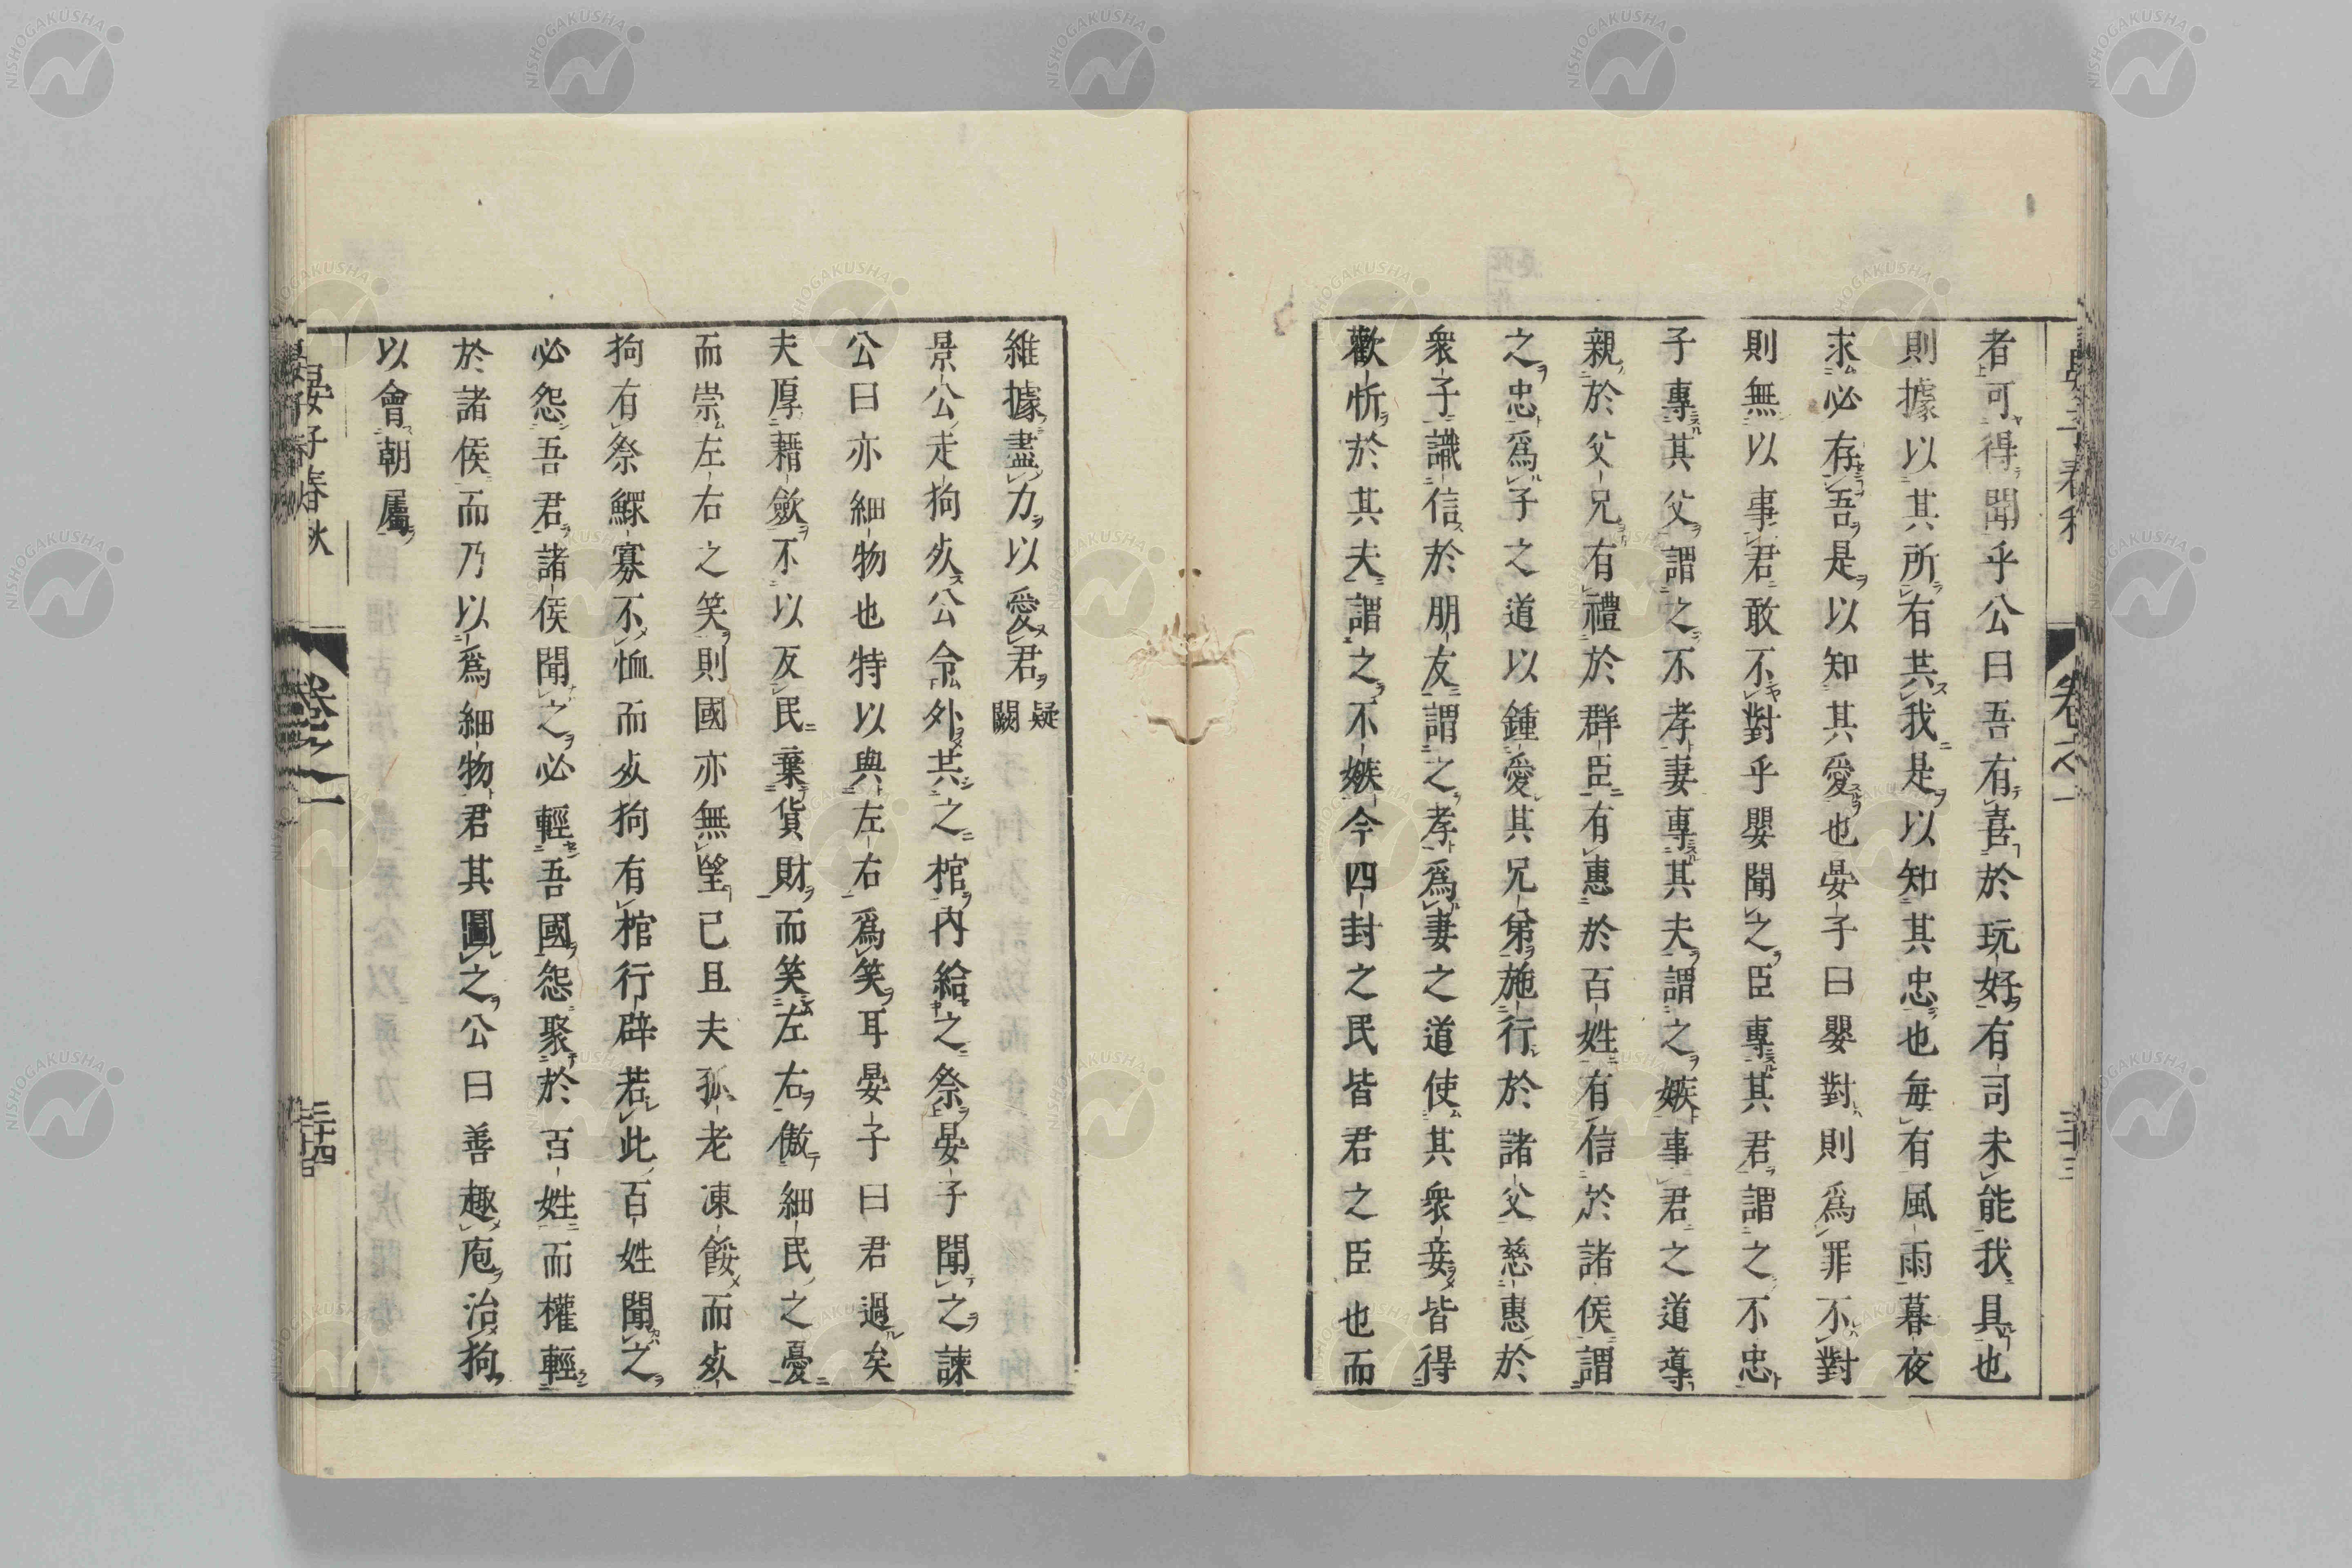 晏子春秋 卷之一 三十三
者可得聞乎公曰吾有喜於玩好有司未能我具也
則據以其所有共我是以知其忠也每有風雨暮夜
求必存吾是以知其愛也晏子曰嬰對則爲罪不對
則無以事君敢不對乎嬰聞之臣專其君謂之不忠
子專其父謂之不孝妻專其夫謂之嫉事君之道導
親於父兄有禮於群臣有惠於百姓有信於諸侯謂
之忠爲子之道以鍾愛其兄弟施行於諸父慈惠於
衆子識信於朋友謂之孝爲妻之道使其衆妾皆得
歡忻於其夫謂之不嫉今四封之民皆君之臣也而
維據盡力以愛君疑闕
景公走狗𣦸公令外共之棺內給之祭晏子聞之諫
公曰亦細物也特以與左右爲笑耳晏子曰君過矣
夫厚藉斂不以反民棄貨財而笑左右傲細民之憂
而崇左右之笑則國亦無望已且夫孤老凍餒而𣦸
狗有祭鰥寡不恤而𣦸狗有棺行辟若此百姓聞之
必怨吾君諸侯聞之必輕吾國怨聚於百姓而權輕
於諸侯而乃以爲細物君其圖之公曰善趣庖治狗
以會朝屬
晏子春秋 卷之一 三十四
NISHOGAKUSHA